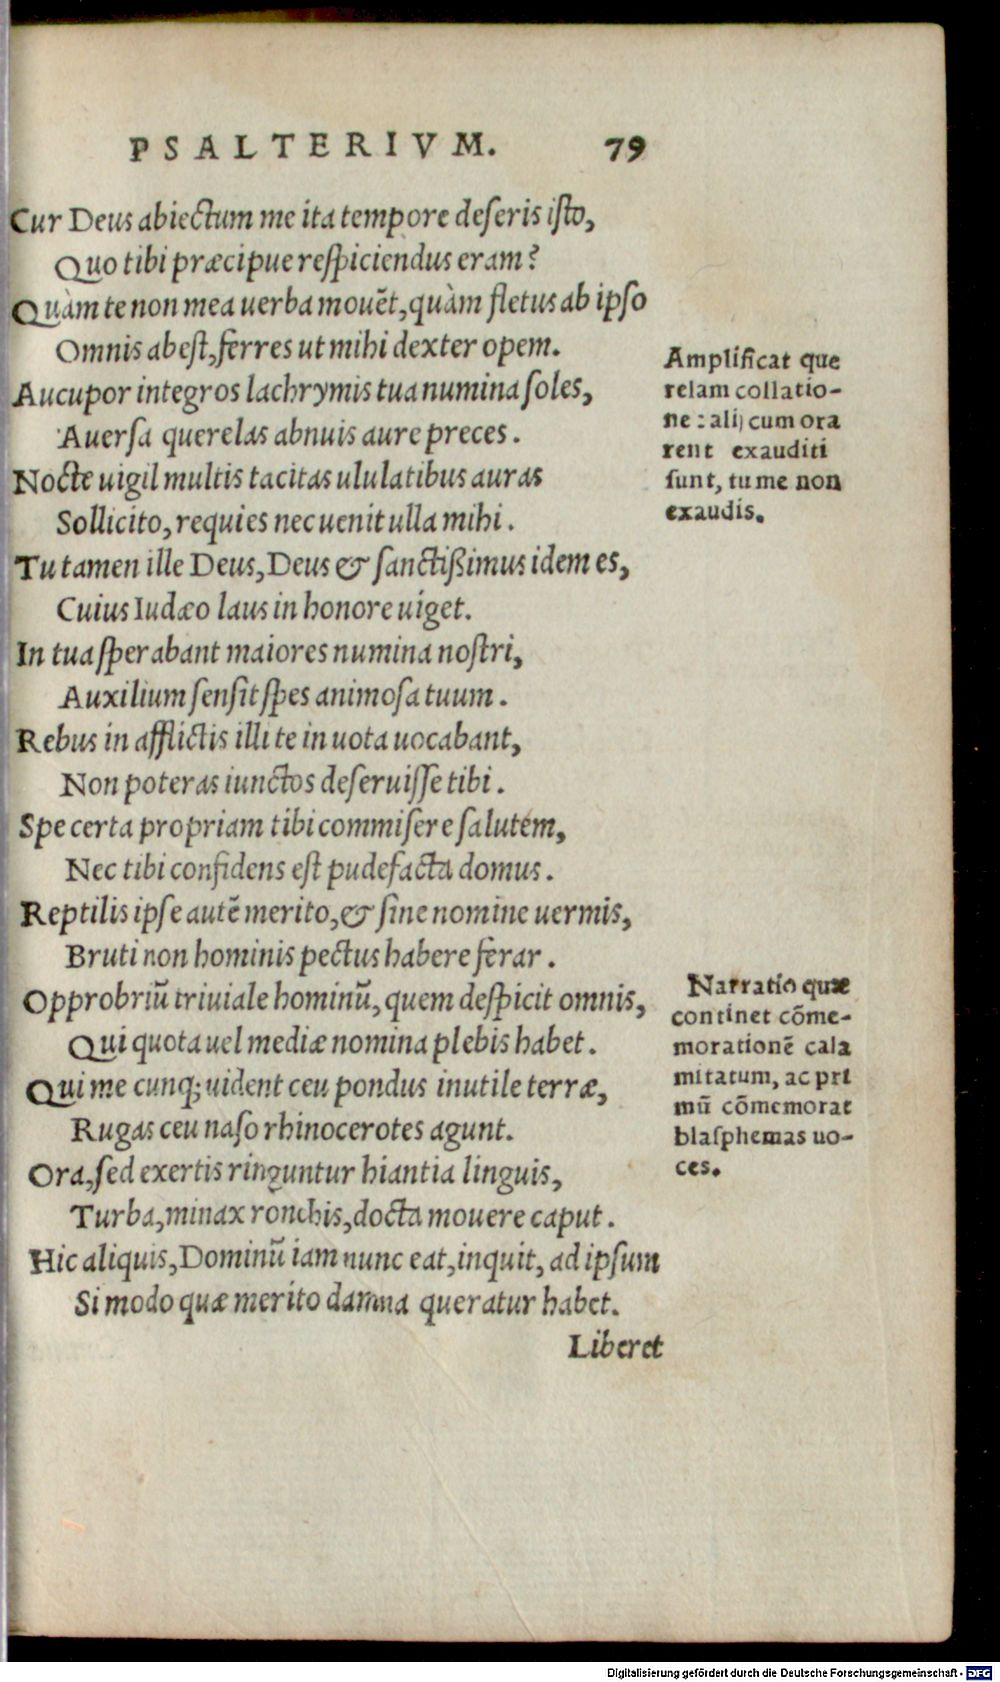 PSALTERIVM. 79
Cur Deus abiectum me ita tempore deseris isto,
Quo tibi præcipue respiciendus eram?
Quàm te non mea uerba mouēt, quàm fletus ab ipso
Omnis abest, ferres ut mihi dexter opem.
Aucupor integros lachrymis tua numina soles,
Auersa querelas abnuis aure preces.
Nocte uigil multis tacitas ululatibus auras
Sollicito, requies nec uenit ulla mihi.
Tu tamen ille Deus, Deus & sanctißimus idem es,
Cuius Iudæo laus in honore uiget.
In tua sperabant maiores numina nostri,
Auxilium sensit spes animosa tuum.
Rebus in afflictis illi te in uota uocabant,
Non poteras iunctos deseruisse tibi.
Spe certa propriam tibi commisere salutem,
Nec tibi confidens est pudefacta domus.
Reptilis ipse autē merito, & sine nomine uermis,
Bruti non hominis pectus habere ferar.
Opprobriū triuiale hominū, quem despicit omnis,
Qui quota uel mediæ nomina plebis habet.
Qui me cunq; uident ceu pondus inutile terræ,
Rugas ceu naso rhinocerotes agunt.
Ora, sed exertis ringuntur hiantia linguis,
Turba, minax ronchis, docta mouere caput.
Hic aliquis, Dominū iam nunc eat, inquit, ad ipsum
Si modo quæ merito damna queratur habet.
Liberet
Amplificat que
relam collatio-
ne: alij cum ora
rent exauditi
sunt, tu me non
exaudis.
Narratio quæ
continet cōme-
morationē cala
mitatum, ac pri
mū cōmemorat
blasphemas uo-
ces.
Digitalisierung gefördert durch die Deutsche Forschungsgemeinschaft - DFG